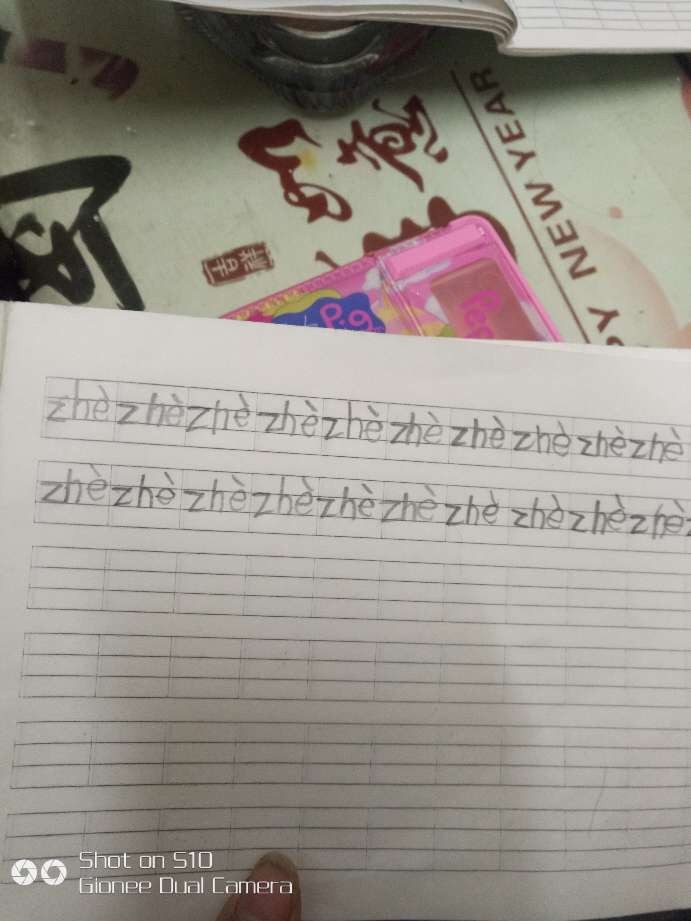 NEW YEAR
PY NEW
Pig
Pep
zhè zhè zhè zhè zhè zhè zhè zhè zhè zhè
zhè zhè zhè zhè zhè zhè zhè zhè zhè zhè
Shot on S10
Gionee Dual Camera